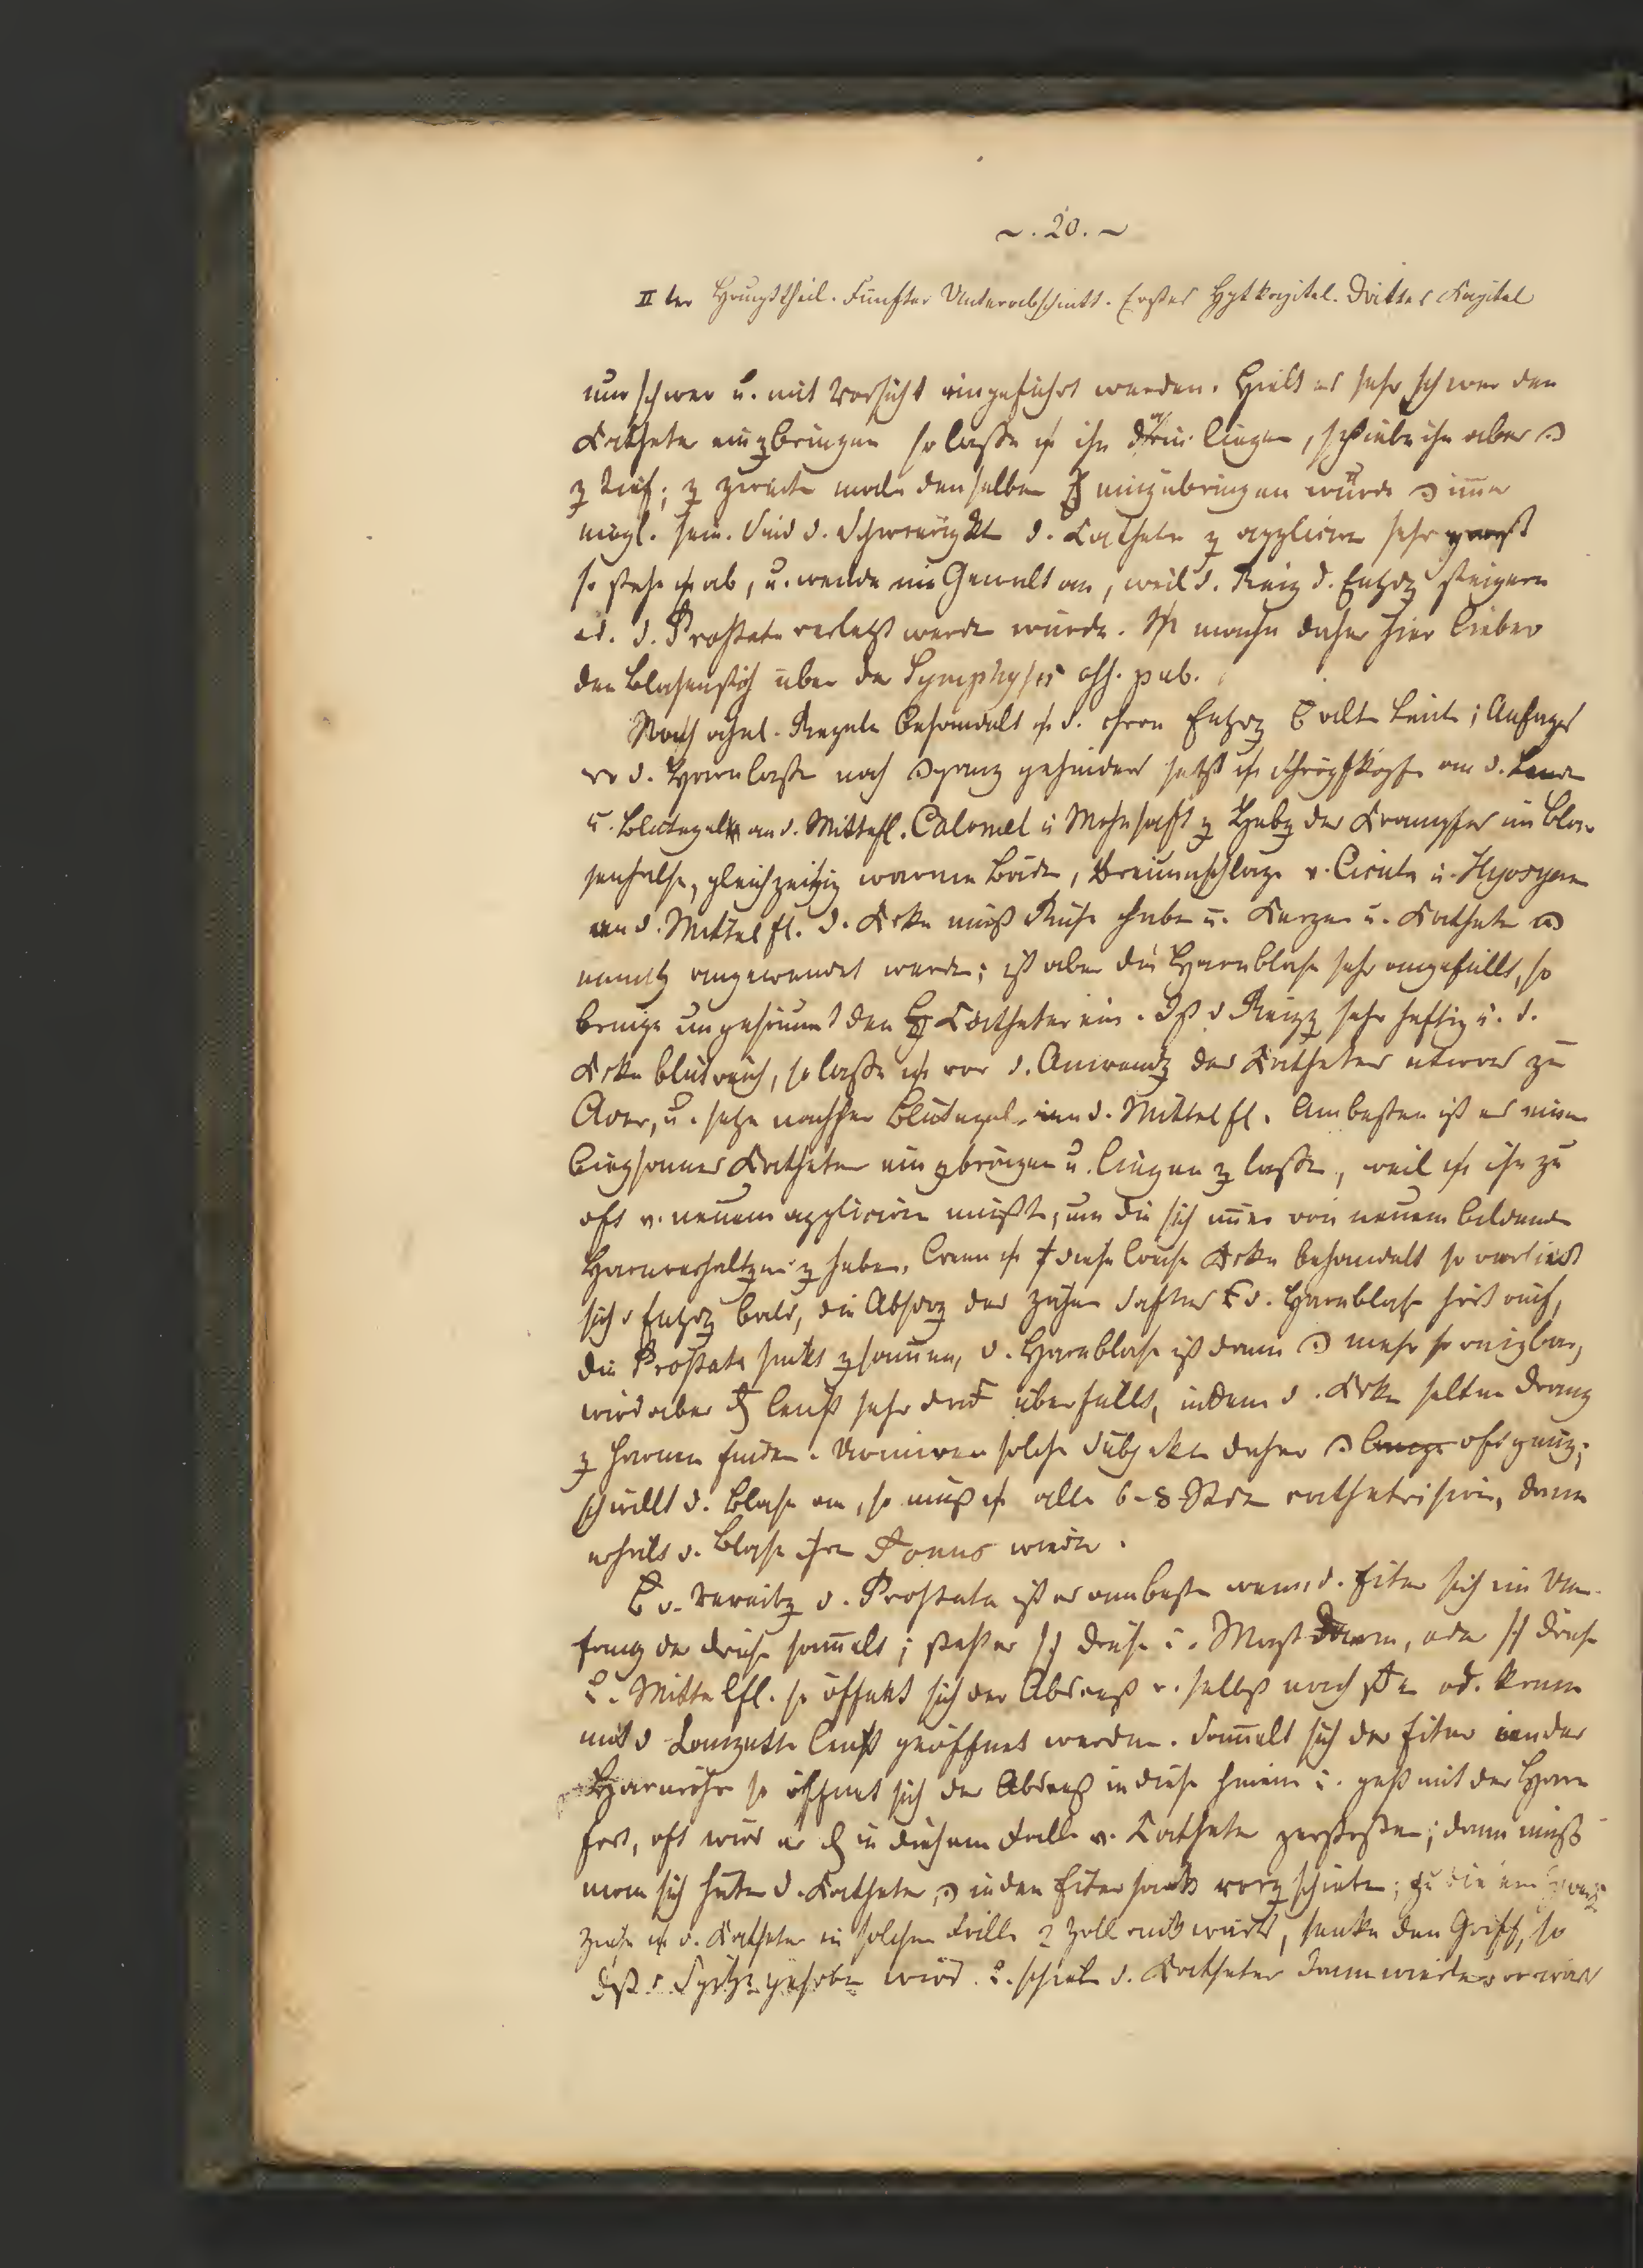 ~. 20. ~
II ter Haupttheil. Fünfter Unterabschnitt. Erstes Hptkapitel. Drittes Kapitel
nur schwer u. mit Vorsicht eingeführt werden. Hielt es sehr schwer den
Kathete einzbringen so lasse ich ihn liegen, schiebe ihn aber
z tief; z zweite male denselben einzubringen würde imer
mögl. sein. Sind d. Schwierigkt d. Cathete z applicire sehr groß
so stehe ich ab, u. wende nie Gewalt an, weil d. Reiz d. Entzdz steigern
od. d. Prostata verletzt werde würde. Ich mache daher hier lieber
den Blasenstich über de Symphysis oss. pub.
Nach ahnl. Regeln behandelt ich d. chron Entzdz alte Leute; Anfangs
wo d. Harnlasse noch ganz gehindert setzt ich Schröpfköpfe an d. Lende
u. Blutegel an d. Mittelfl. Calomel u Mohnsaft z Hebg der Krampfes im Bla-
senhalse, gleichzeitig warme Bäder, Breiumschläge v. Cicuta u. Hyosyam
an d. Mittelfl. D. Krke muß Ruhe haben u. Kerzen u. Kathete
angewendet werde; ist aber die Harnblase sehr angefüllt, so
bringe ungesäumt den Catheter ein. Ist d Reizg sehr heftig u. d.
Krke blutreich, so lasse ich vor d. Anwendg des Katheters etwas zu
Ader, u. setze nachher Blutegel an d. Mittelfl. Am besten ist es einen
biegsames Katheter einzbringen u. liegen z lasse, weil ich ihn zu
oft v. neuem applicire müßte, um die sich imer von neuem bildende
Harnverhaltgen z heben. Wenn ich diese Weise Krke behandelt so verliert
sich d Entzdz bald, die Absdrg des zähen Saftes d. Harnblase hört auf,
die Prostata sinkt zsamen, d. Harnblase ist dann mehr so reizbar,
wird aber leicht sehr überfüllt, indem d. Krke selten Drang
z harnen finde. Uriniren solche Subjekte daher oft genug;
schwillt d. Blase an, so muß ich alle 6-8 Stde cathetrisire, dann
erhält d. Blase ihre Tonus wieder.
d. Vereitg d. Prostata ist es am beste wenn d. Eiter sich im Um-
fang der Drüse samelt; Drüse u. Mastdarm, oder Drüse
u. Mittelfl. so öffnet sich der Absceß v. selbst nach od. kann
mit d Lanzette leicht geöffnet werden. Samelt sich der Eiter an der
Harnröhre so öffnet sich der Absceß in diese hinein u. geht mit der Harn
fort, oft wird er in diesem Falle v. Cathete zerstoßen; dann muß
man sich hüten d. Kathete in den Eitersack vorz schieben;
ziehe ich d. Katheter in solchem Falle 2 Zoll auswärts, senke den Griff, so
dß d Spitze gehoben wird u. schiebe d. Katheter dann wieder vorwärts